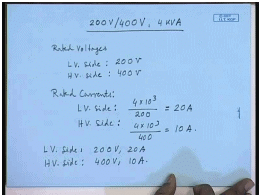 200V/400V, 4 KVA
Rated Voltages
L.V. Side : 200V
H.V. Side : 400V
Rated Currents:
L.V. Side : 4×10³/200 = 20A
H.V. Side : 4×10³/400 = 10A.
L.V. Side : 200V, 20A
H.V. Side : 400V, 10A.